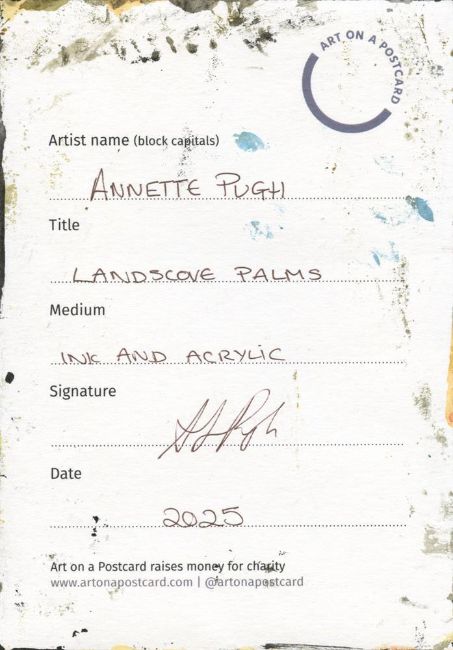 ART ON A POSTCARD
Artist name (block capitals)
ANNETTE PUGH
Title
LANDSCOVE PALMS
Medium
INK AND ACRYLIC
Signature
Date
2025
Art on a Postcard raises money for charity
www.artonapostcard.com | @artonapostcard